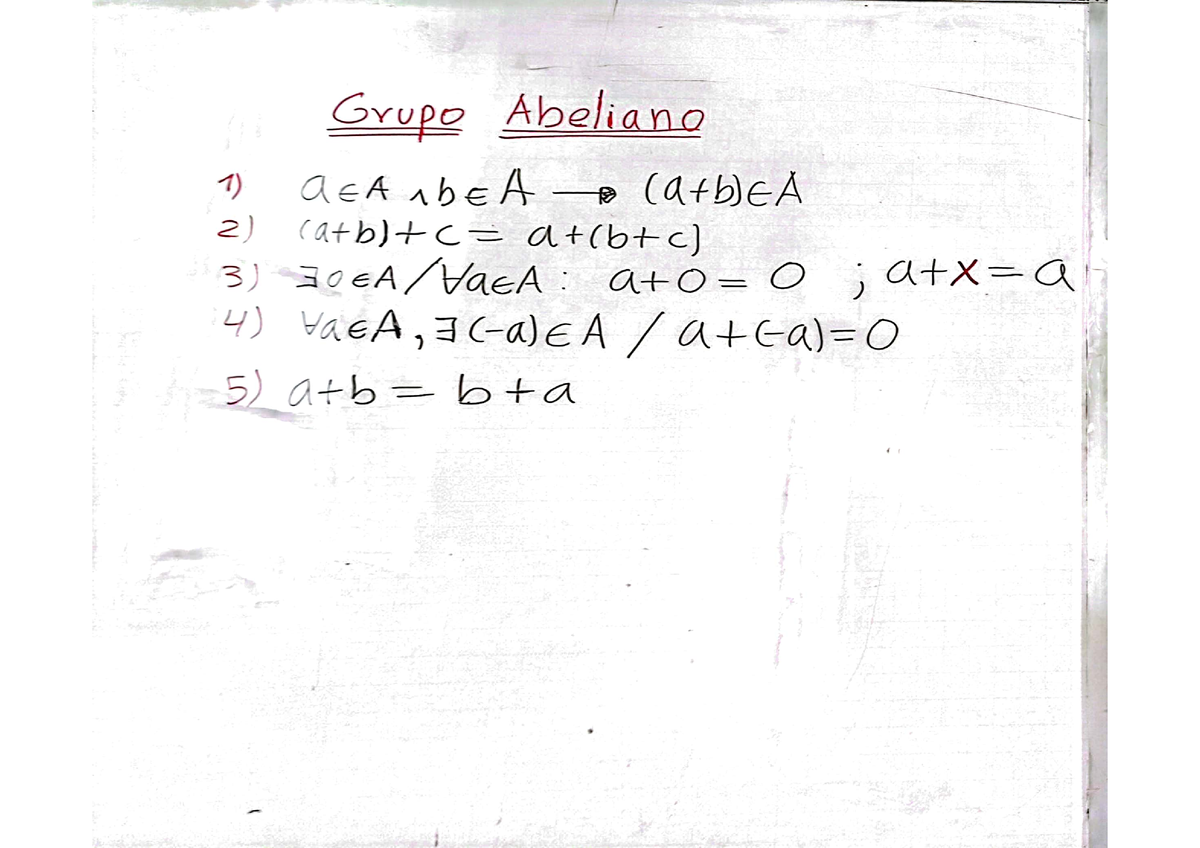 Grupo Abeliano
1) a∈A ∧ b∈A → (a+b)∈A
2) (a+b)+c = a+(b+c)
3) ∃0∈A/∀a∈A: a+0=0 ; a+x=a
4) ∀a∈A, ∃(-a)∈A / a+(-a)=0
5) a+b = b+a